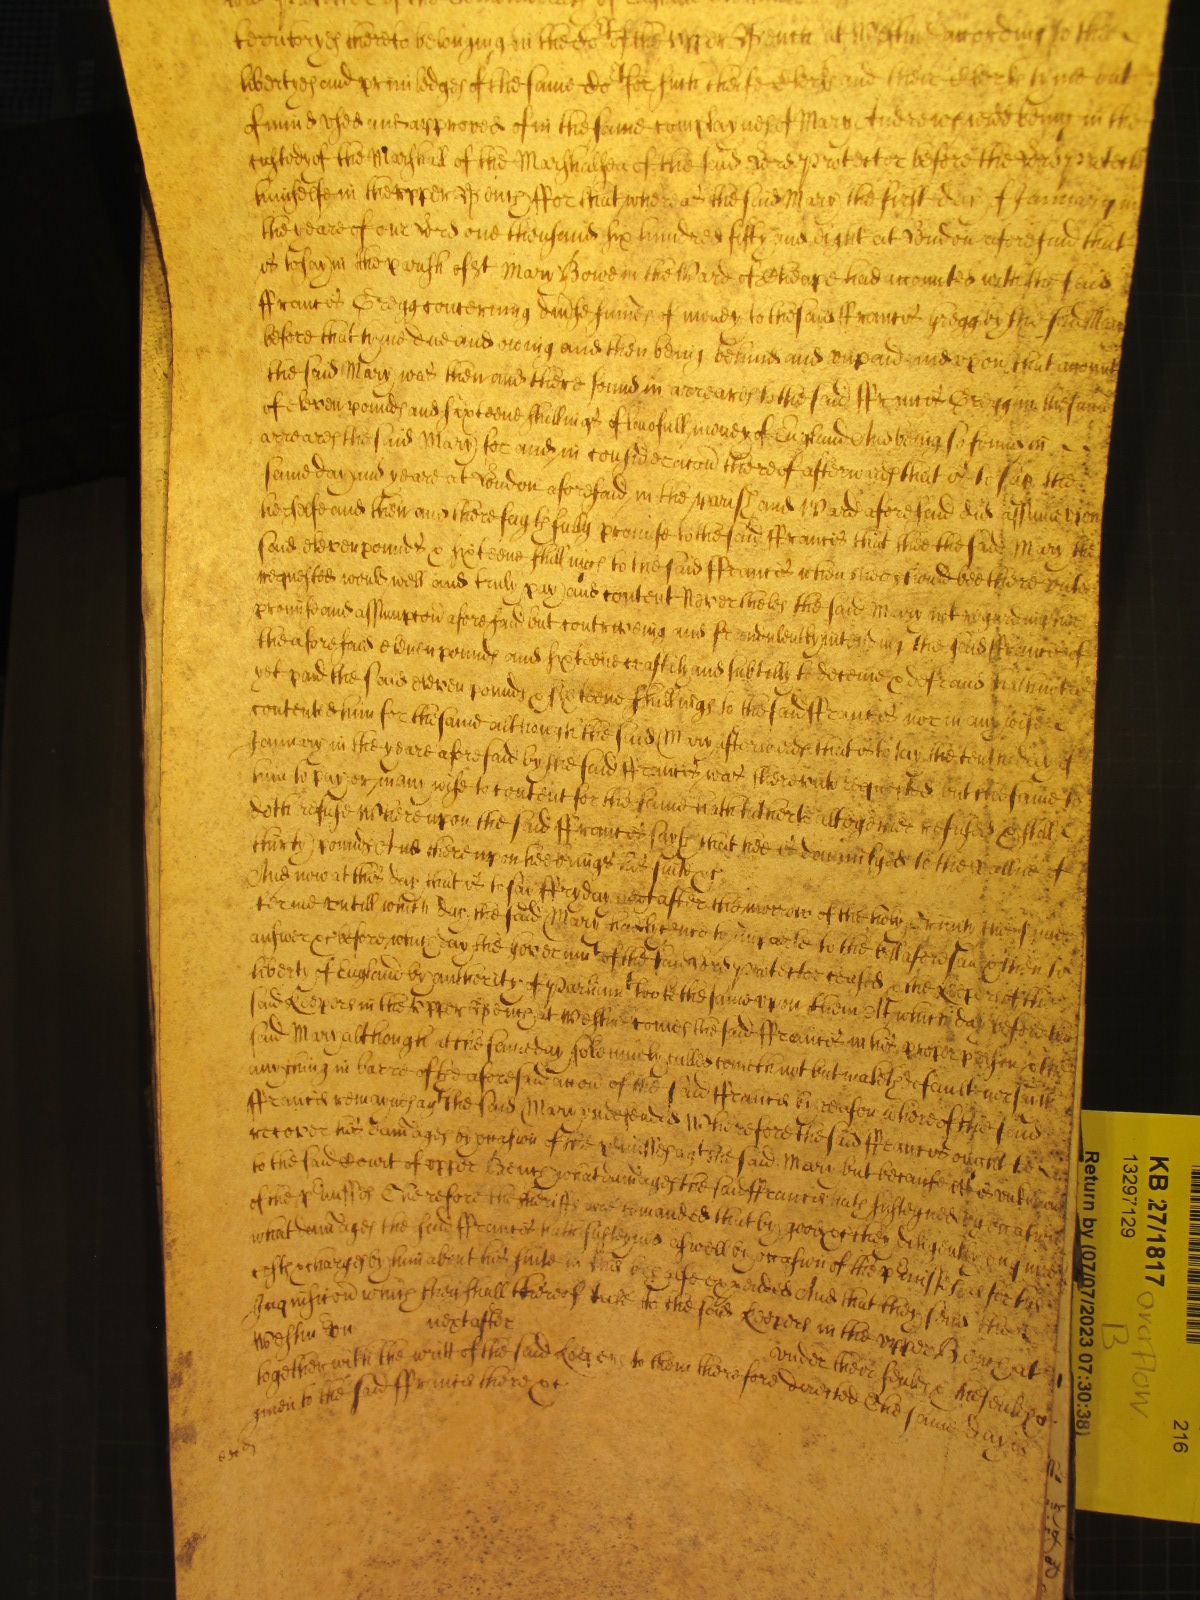 territoryes thereto belonging in the Co't of the upper Bench at Westm according to the
libertyes and priviledges of the same Co't for such cheife Clerks and their Clerks tyme out
of mind used and approved of in the same complaynes of Mary Andrewes widd being in the
custody of the Marshall of the Marshalsea of the said Lord protector before the Lord protector
himselfe in the upper Bench ffor that whereas the said Mary the first day of January in
the yeare of our Lord one thousand six hundred fifty and eight at London aforesaid that
is to say in the parish of St Mary Bowe in the Ward of Cheape had accounted with the said
ffrancis Gregg concerning divse summes of money to the said ffrancis Gregg by the said Mary
before that tyme due and owing and then being behind and unpaid and upon that account
the said Mary was then and there found in arreares to the said ffrancis Gregg in the summe
of eleven pounds and sixteene shillings of lawfull money of England And being so found in
arreares the said Mary for and in consideracon thereof afterwards that is to say the
same day and yeare at London aforesaid in the parish and Ward aforesaid did assume upon
herselfe and then and there faythfully promise to the said ffrancis that shee the said Mary the
said eleven pounds & sixteene shillings to the said ffrancis when shee should bee there unto
requested would well and truly pay and content Neverthelesse the said Mary not regarding her
promise and assumpcon aforesaid but contriveing and fraudulently intending the said ffrancis of
the aforesaid eleven pounds and sixteene craftily and subtilly to deceive & defraud hath not
yet paid the said eleven pounds & sixteene shillings to the said ffrancis nor in any wise
contented him for the same although the said Mary afterwards that is to say the tenth day of
January in the yeare aforesaid by the said ffrancis was thereunto requested but the same to
him to pay or in any wise to content for the same hath hitherto altogether refused & still
doth refuse Whereupon the said ffrancis sayth that hee is damnifyed to the vallue of
thirty pounds And thereupon hee brings his suite &c
And now at this day that is to say ffryday next after the morrow of the holy Trinity this same
terme untill which day the said Mary had lycence to imparle to the bill aforesaid & then to
answer &c before which day the governmt of the said Lord protector ceased & the Keepers of the
liberty of England by authority of Parliamt tooke the same upon them At which day before the
said Keepers in the Upper Bench at Westm comes the said ffrancis in his proper person & the
said Mary although at the same day solemnely called cometh not but maketh default nor saith
any thing in barre of the aforesaid accon of the said ffrancis by reason whereof the said
ffrancis remaynes agt the said Mary undefended Wherefore the said ffrancis ought to
recover his damages by occasion of the pmisses agt the said Mary but because it is unknowne
to the said Court of upper Bench what damages the said ffrancis hath susteyned by occasion
of the pmisses Therefore the Sheriffs are comanded that by good &c they diligently enquire
what damages the said ffrancis hath susteyned aswell by occasion of the pmisses as for his
costs & charges by him about his suite in this behalfe expended And that they send the
Inquisicon which they shall thereof take to the said Keepers in the upper Bench at
Westm on next after under their seales & the seales &c
together with the writt of the said Keepers to them therefore directed The same day is
given to the said ffrancis there &c
KB 27/1817 overflow
B
13297129
216
Return by (07/07/2023 07:30:38)